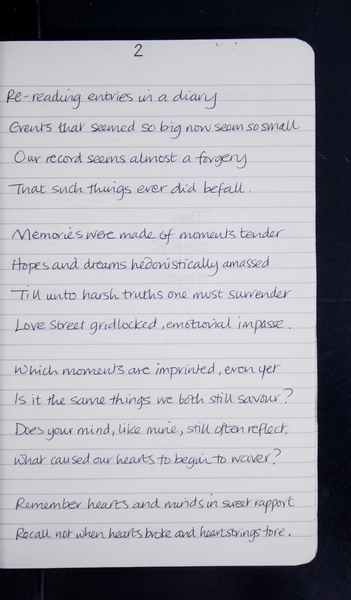 2
Re-reading entries in a diary
Events that seemed so big now seem so small
Our record seems almost a forgery
That such things ever did befall.
Memories were made of moments tender
Hopes and dreams hedonistically amassed
Till unto harsh truths one must surrender
Love Street gridlocked, emotional impasse.
Which moments are imprinted, even yet
Is it the same things we both still savour?
Does your mind, like mine, still often reflect,
What caused our hearts to begin to waver?
Remember hearts and minds in sweet rapport
Recall not when hearts broke and heartstrings tore.